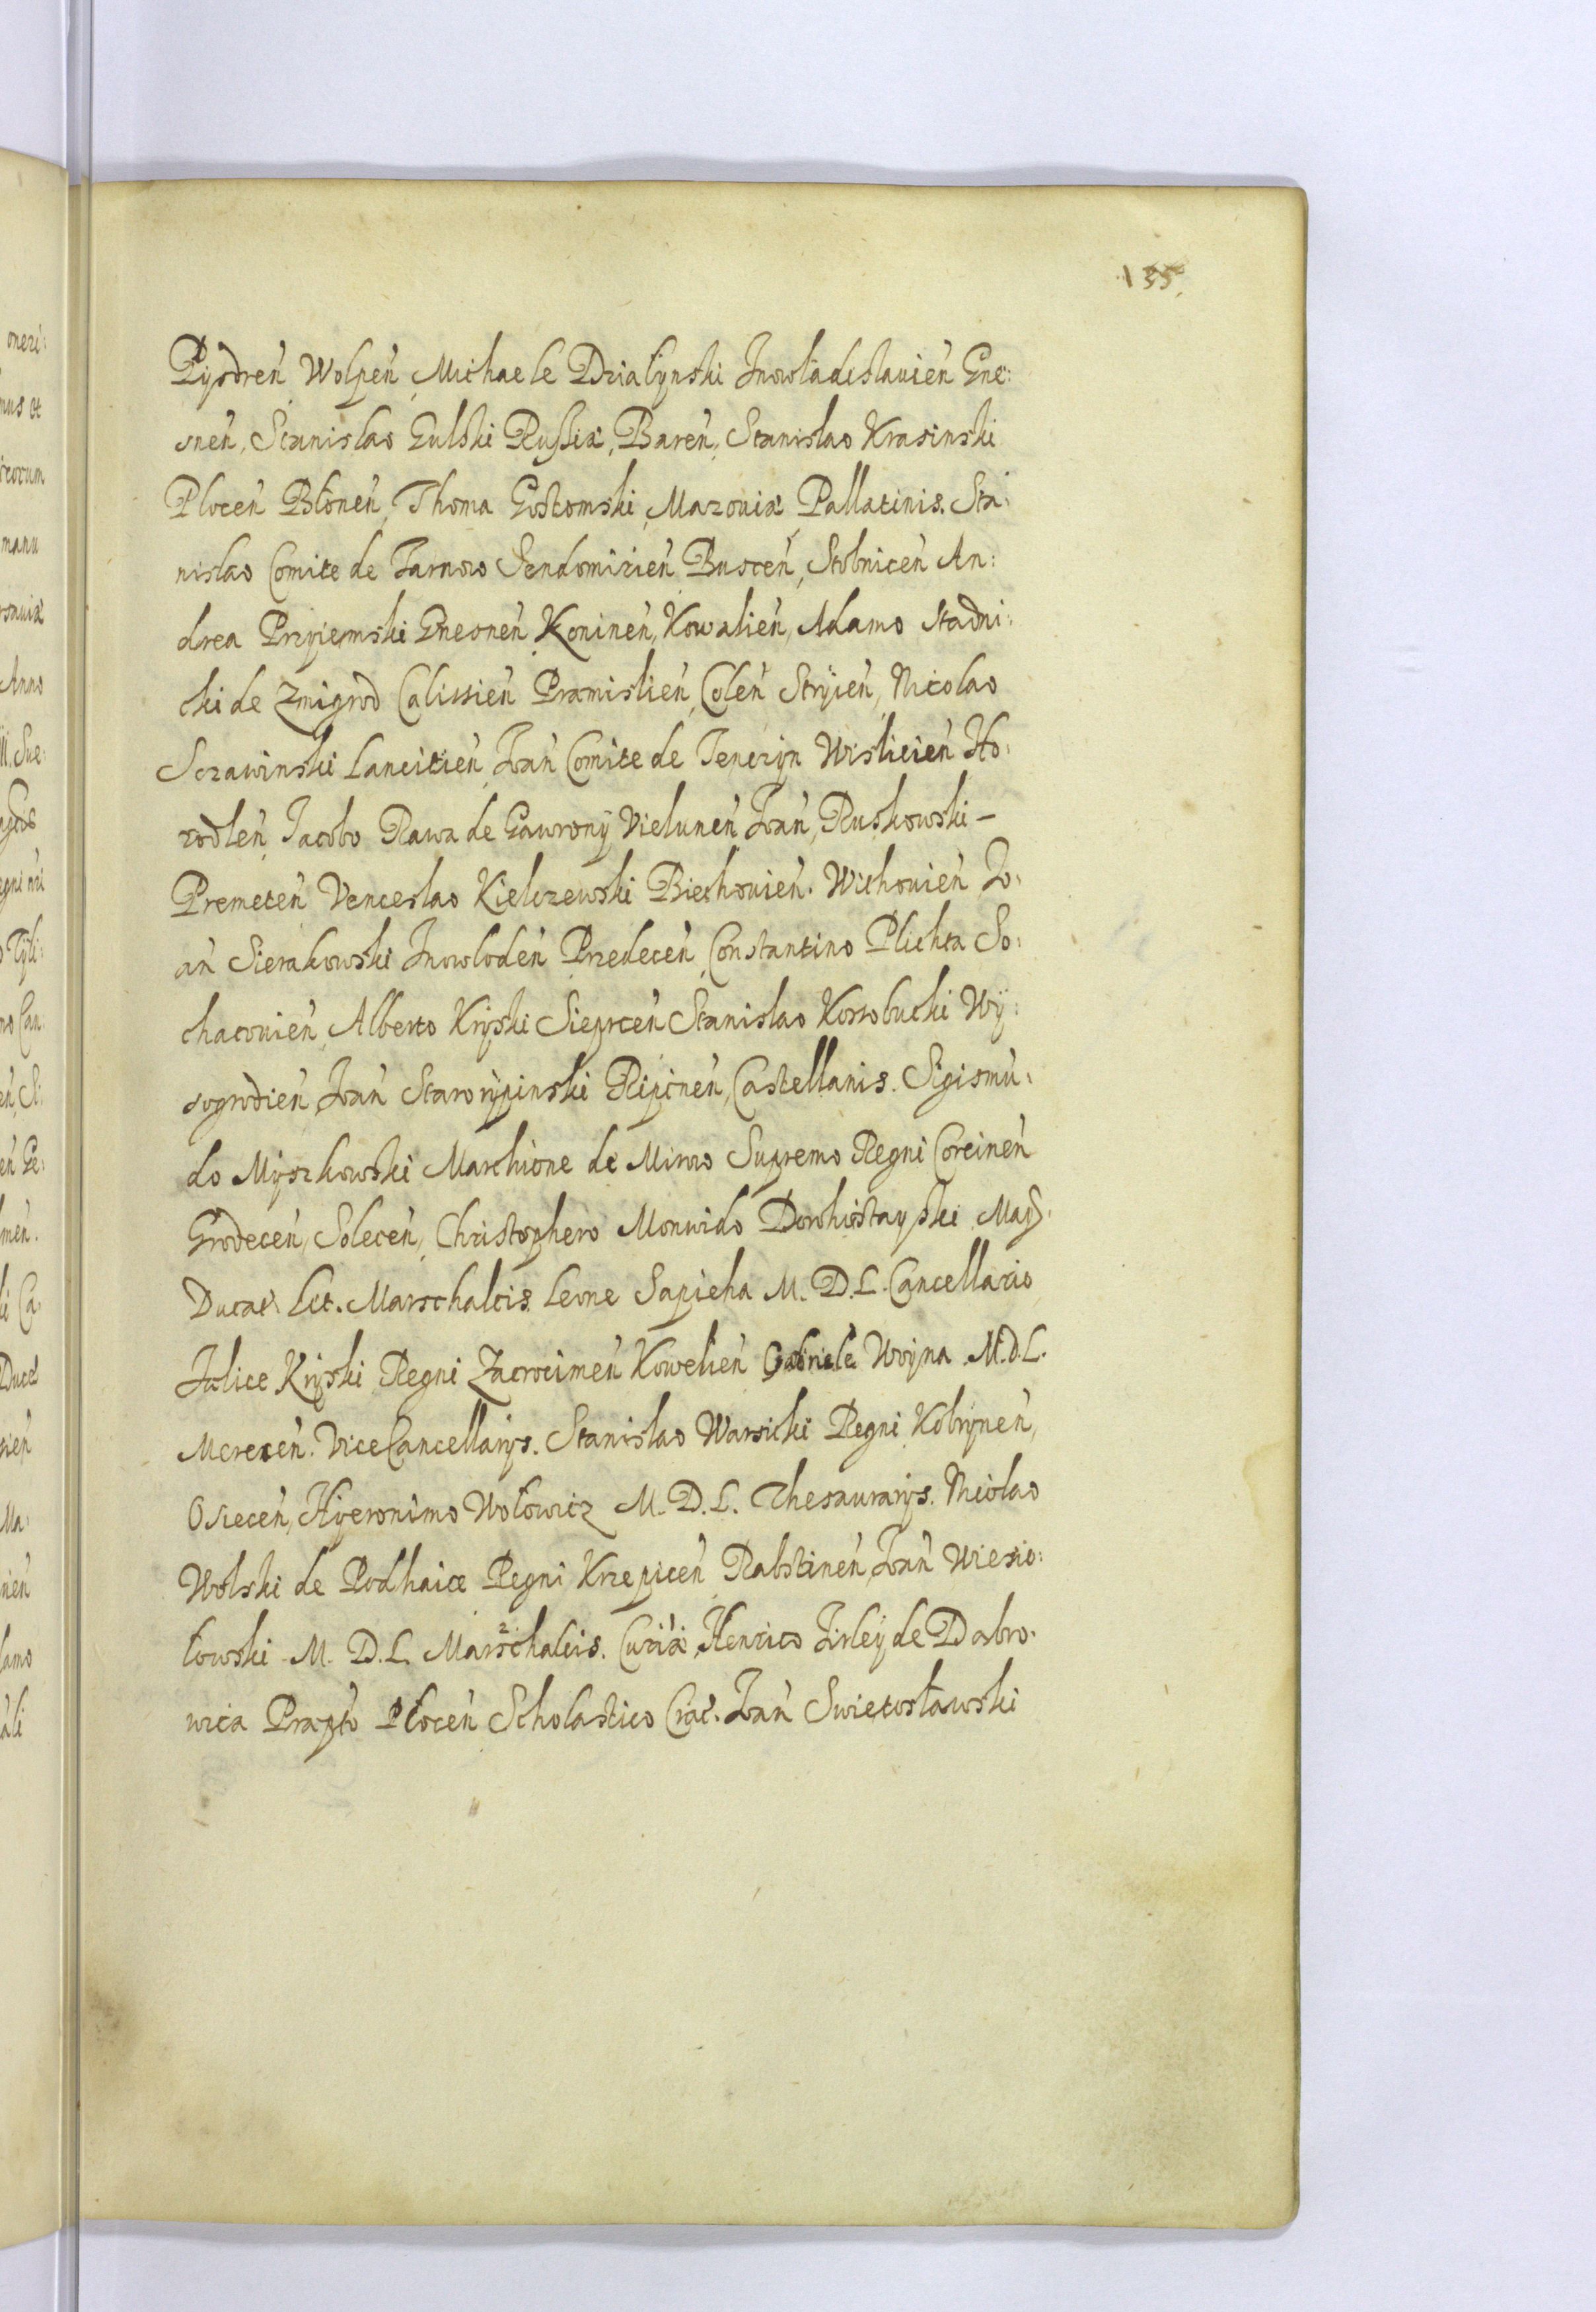 135
Pijzdreń Wolpeń, Michaele Dzialijnski Inowładislauień Gne:
sneń, Stanislao Gulski Russiæ, Bareń, Stanislao Krasinski
Ploceń Błoneń, Thoma Gostomski, Mazouiæ Pallatinis. Sta:
nislao Comite de Tarnow Sendomirień Busceń, Stobniceń An:
drea Prziiemski Gnesneń Konineń, Kowalień, Adamo Stadni:
cki de Zmigrod Calissień Præmislień, Coleń Strÿień, Nicolao
Sczawinski Lancitień Joań Comite de Tenczijn Wislicień Ho:
rodleń, Jacobo Rawa de Gawronÿ Vieluneń Joań, Ruskowski –
Premeteń Venceslao Kielczewski Biechouień. Wichouień Jo:
ań Sierakowski Inowlodeń Przedeceń, Constantino Plichta So:
chacouień Alberto Krijski Sieprceń Stanislao Kossobucki Wÿ:
sogrodień Joań Starorijpinski Ripineń, Castellanis. Sigismu:
do Mijszkowski Marchione de Mirow Supremo Regni Corcineń
Grodeceń, Soleceń, Christophero Monwido Dorohostayski Mag.
Ducat. Lit. Marschalcis. Leone Sapieha M. D. L. Cancellario
Fælice Krijski Regni Zacrocimeń Kowelień Gabriele Woijna M.D.L.
Mereceń. ViceCancellarijs. Stanislao Warsicki Regni Kobrijneń,
Osieceń, Hyeronimo Wołowicz M. D. L. Thesaurarijs. Nicolao
Wolski de Podhaice Regni Krzepiceń Rabstineń, Joań Wiesio:
łowski M. D. L. Marschalcis. Curiæ, Henrico Firleÿ de Dabro:
wica Præpto Płoceń Scholastico Crac. Joań Swietosławski